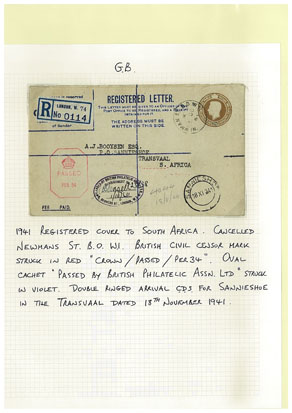 G.B.
REGISTERED LETTER.
THIS LETTER MUST BE GIVEN TO AN OFFICER OF THE
POST OFFICE TO BE REGISTERED, AND A RECEIPT
OBTAINED FOR IT.
THE ADDRESS MUST BE
WRITTEN ON THIS SIDE.
R
LONDON, W. 74
No 0114
of Sender.
A.J.BOOYSEN ESQ.
P.O.
TRANSVAAL
S. AFRICA
PASSED
PER 34
FEE PAID.
1941 REGISTERED COVER TO SOUTH AFRICA. CANCELLED
NEWMANS ST. B.O. W1. BRITISH CIVIL CENSOR MARK
STRUCK IN RED "CROWN / PASSED / PER 34". OVAL
CACHET "PASSED BY BRITISH PHILATELIC ASSN. LTD" STRUCK
IN VIOLET. DOUBLE RINGED ARRIVAL CDS FOR SANNIESHOE
IN THE TRANSVAAL DATED 18TH NOVEMBER 1941.